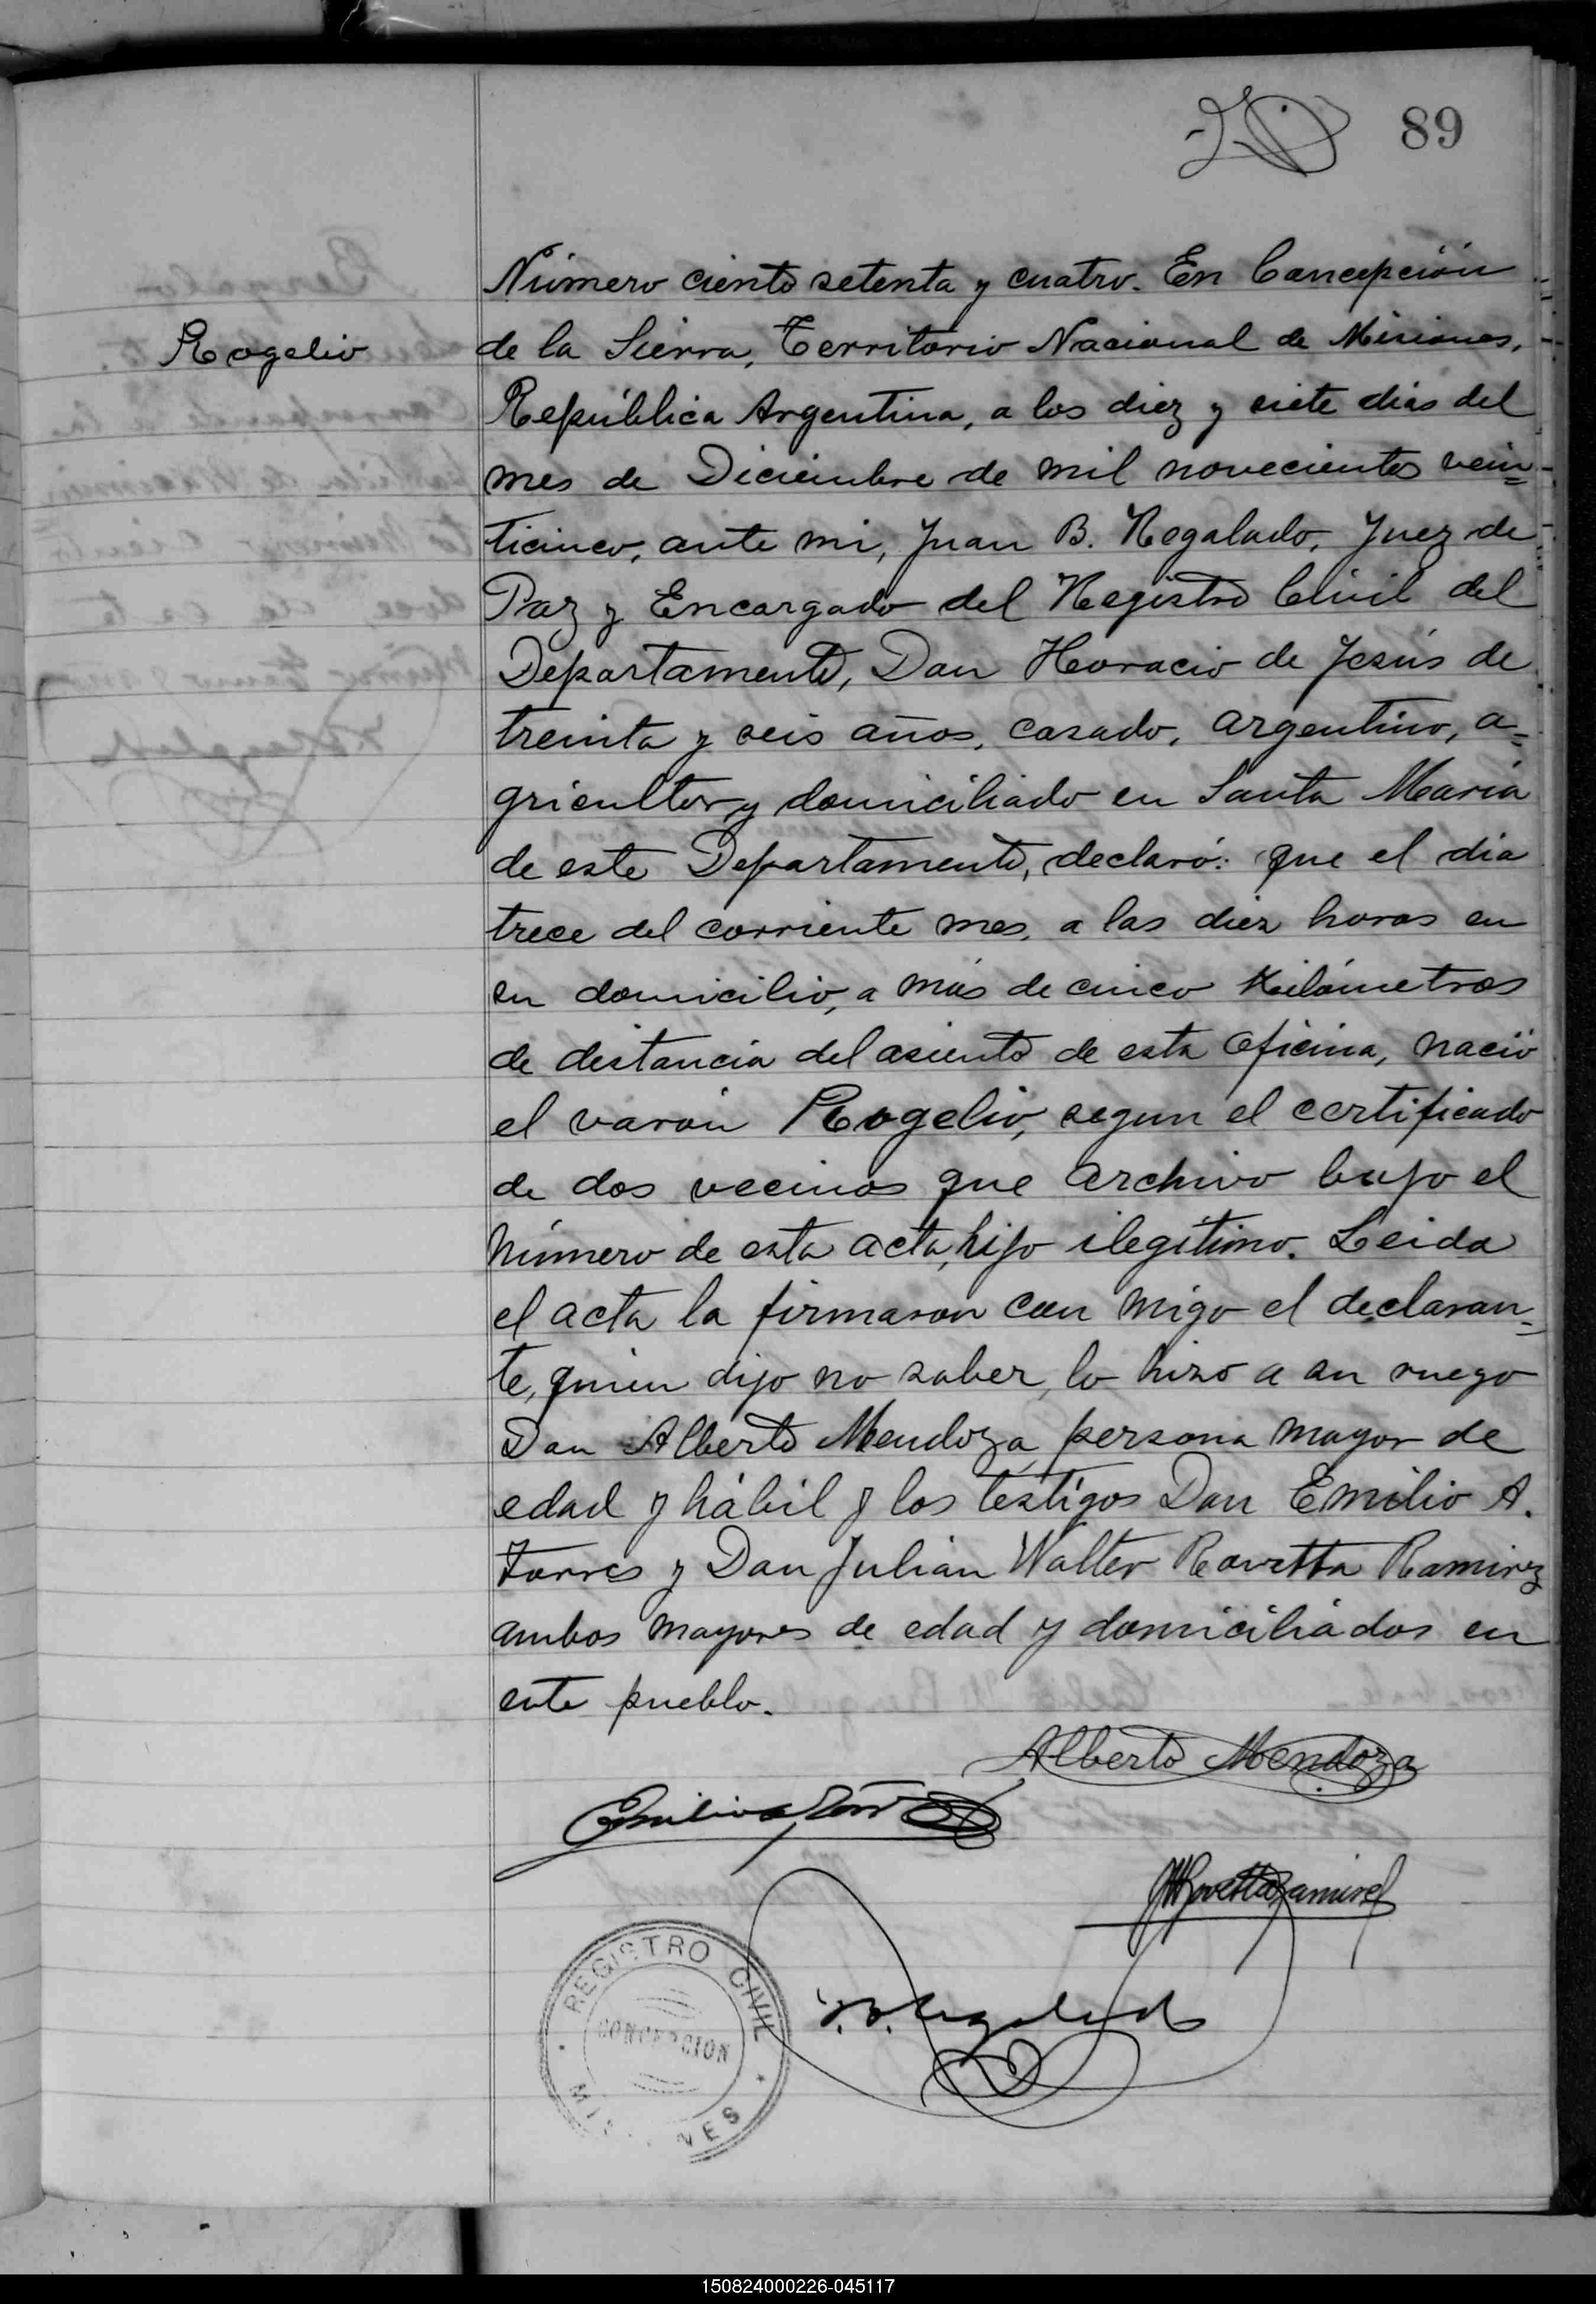 89
Rogelio
Número ciento setenta y cuatro. En Concepción
de la Sierra, Territorio Nacional de Misiones,
República Argentina, a los diez y siete dias del
mes de Diciembre de mil novecientos vein=
ticinco, ante mi, Juan B. Regalado, Juez de
Paz y Encargado del Registro Civil del
Departamento, Don Horacio de Jesús de
treinta y seis años, casado, argentino, a=
gricultor y domiciliado en Santa María
de este Departamento, declaró: que el dia
trece del corriente mes, a las diez horas en
su domicilio, a más de cinco Kilómetros
de distancia del asiento de esta oficina, nació
el varón Rogelio, segun el certificado
de dos vecinos que archivo bajo el
número de esta acta, hijo ilegítimo. Leida
el acta la firmaron con migo el declaran=
te, quien dijo no saber, lo hizo a su ruego
Don Alberto Mendoza, persona mayor de
edad y hábil y los testigos Don Emilio A.
Torres y Don Julián Walter Rovetta Ramirez
ambos mayores de edad y domiciliados en
este pueblo.
Alberto Mendoza
Emilio A Torres
JWRovettaRamirez
J. B. Regalado
REGISTRO CIVIL
CONCEPCION
MISIONES
150824000226-045117